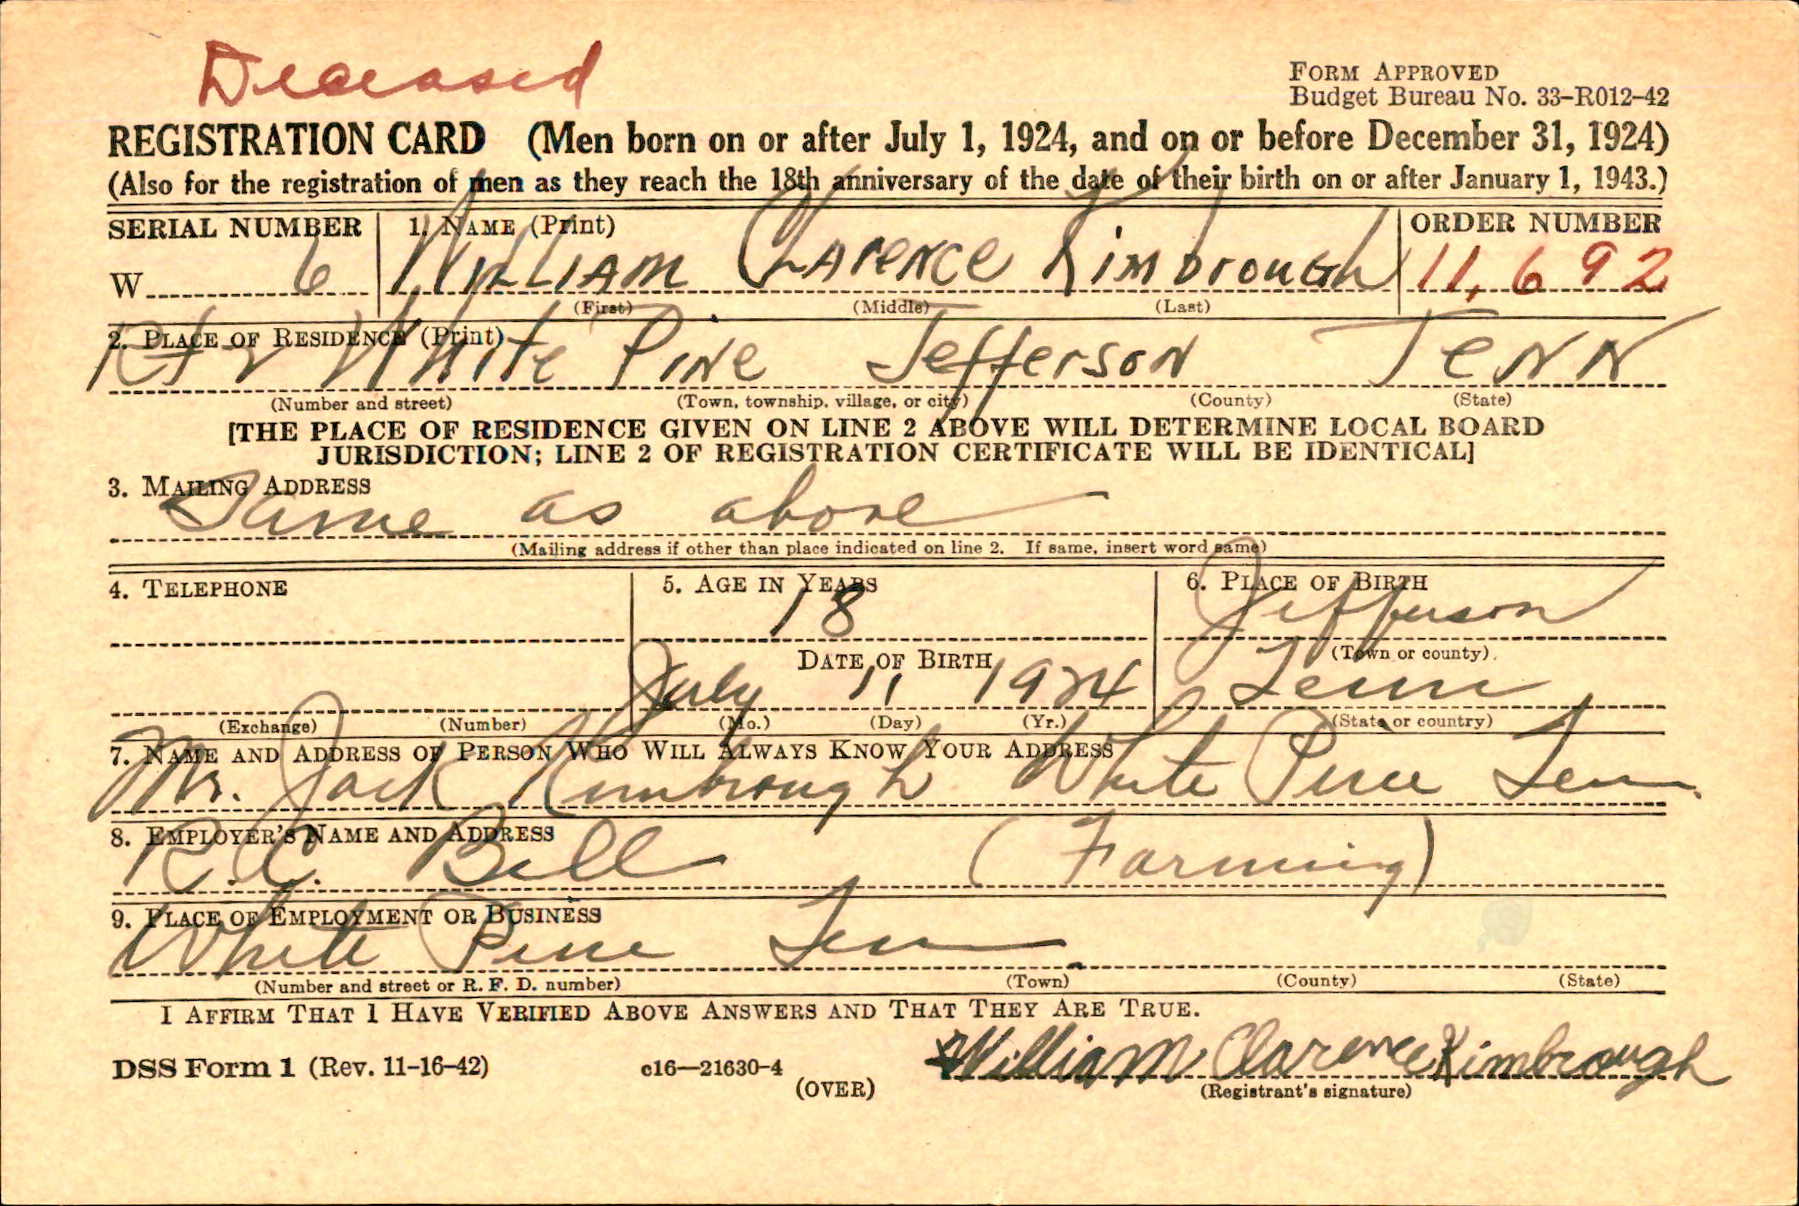 Deceased
FORM APPROVED
Budget Bureau No. 33–R012–42
REGISTRATION CARD (Men born on or after July 1, 1924, and on or before December 31, 1924)
(Also for the registration of men as they reach the 18th anniversary of the date of their birth on or after January 1, 1943.)
SERIAL NUMBER 1. NAME (Print) ORDER NUMBER
W 6 WILLIAM CLARENCE KimbrouGh 11,692
(First) (Middle) (Last)
2. PLACE OF RESIDENCE (Print)
Rt 2 White Pine Jefferson TENN
(Number and street) (Town, township, village, or city) (County) (State)
[THE PLACE OF RESIDENCE GIVEN ON LINE 2 ABOVE WILL DETERMINE LOCAL BOARD
JURISDICTION; LINE 2 OF REGISTRATION CERTIFICATE WILL BE IDENTICAL]
3. MAILING ADDRESS
Same as above
(Mailing address if other than place indicated on line 2. If same, insert word same)
4. TELEPHONE 5. AGE IN YEARS 6. PLACE OF BIRTH
18 Jefferson
DATE OF BIRTH (Town or county)
July 11 1924 Tenn
(Exchange) (Number) (Mo.) (Day) (Yr.) (State or country)
7. NAME AND ADDRESS OF PERSON WHO WILL ALWAYS KNOW YOUR ADDRESS
Mr. Jack Kimbrough White Pine Tenn.
8. EMPLOYER'S NAME AND ADDRESS
R.C. Bell (Farming)
9. PLACE OF EMPLOYMENT OR BUSINESS
White Pine Tenn
(Number and street or R. F. D. number) (Town) (County) (State)
I AFFIRM THAT I HAVE VERIFIED ABOVE ANSWERS AND THAT THEY ARE TRUE.
DSS Form 1 (Rev. 11-16-42) c16—21630-4 William Clarence Kimbrough
(OVER) (Registrant's signature)